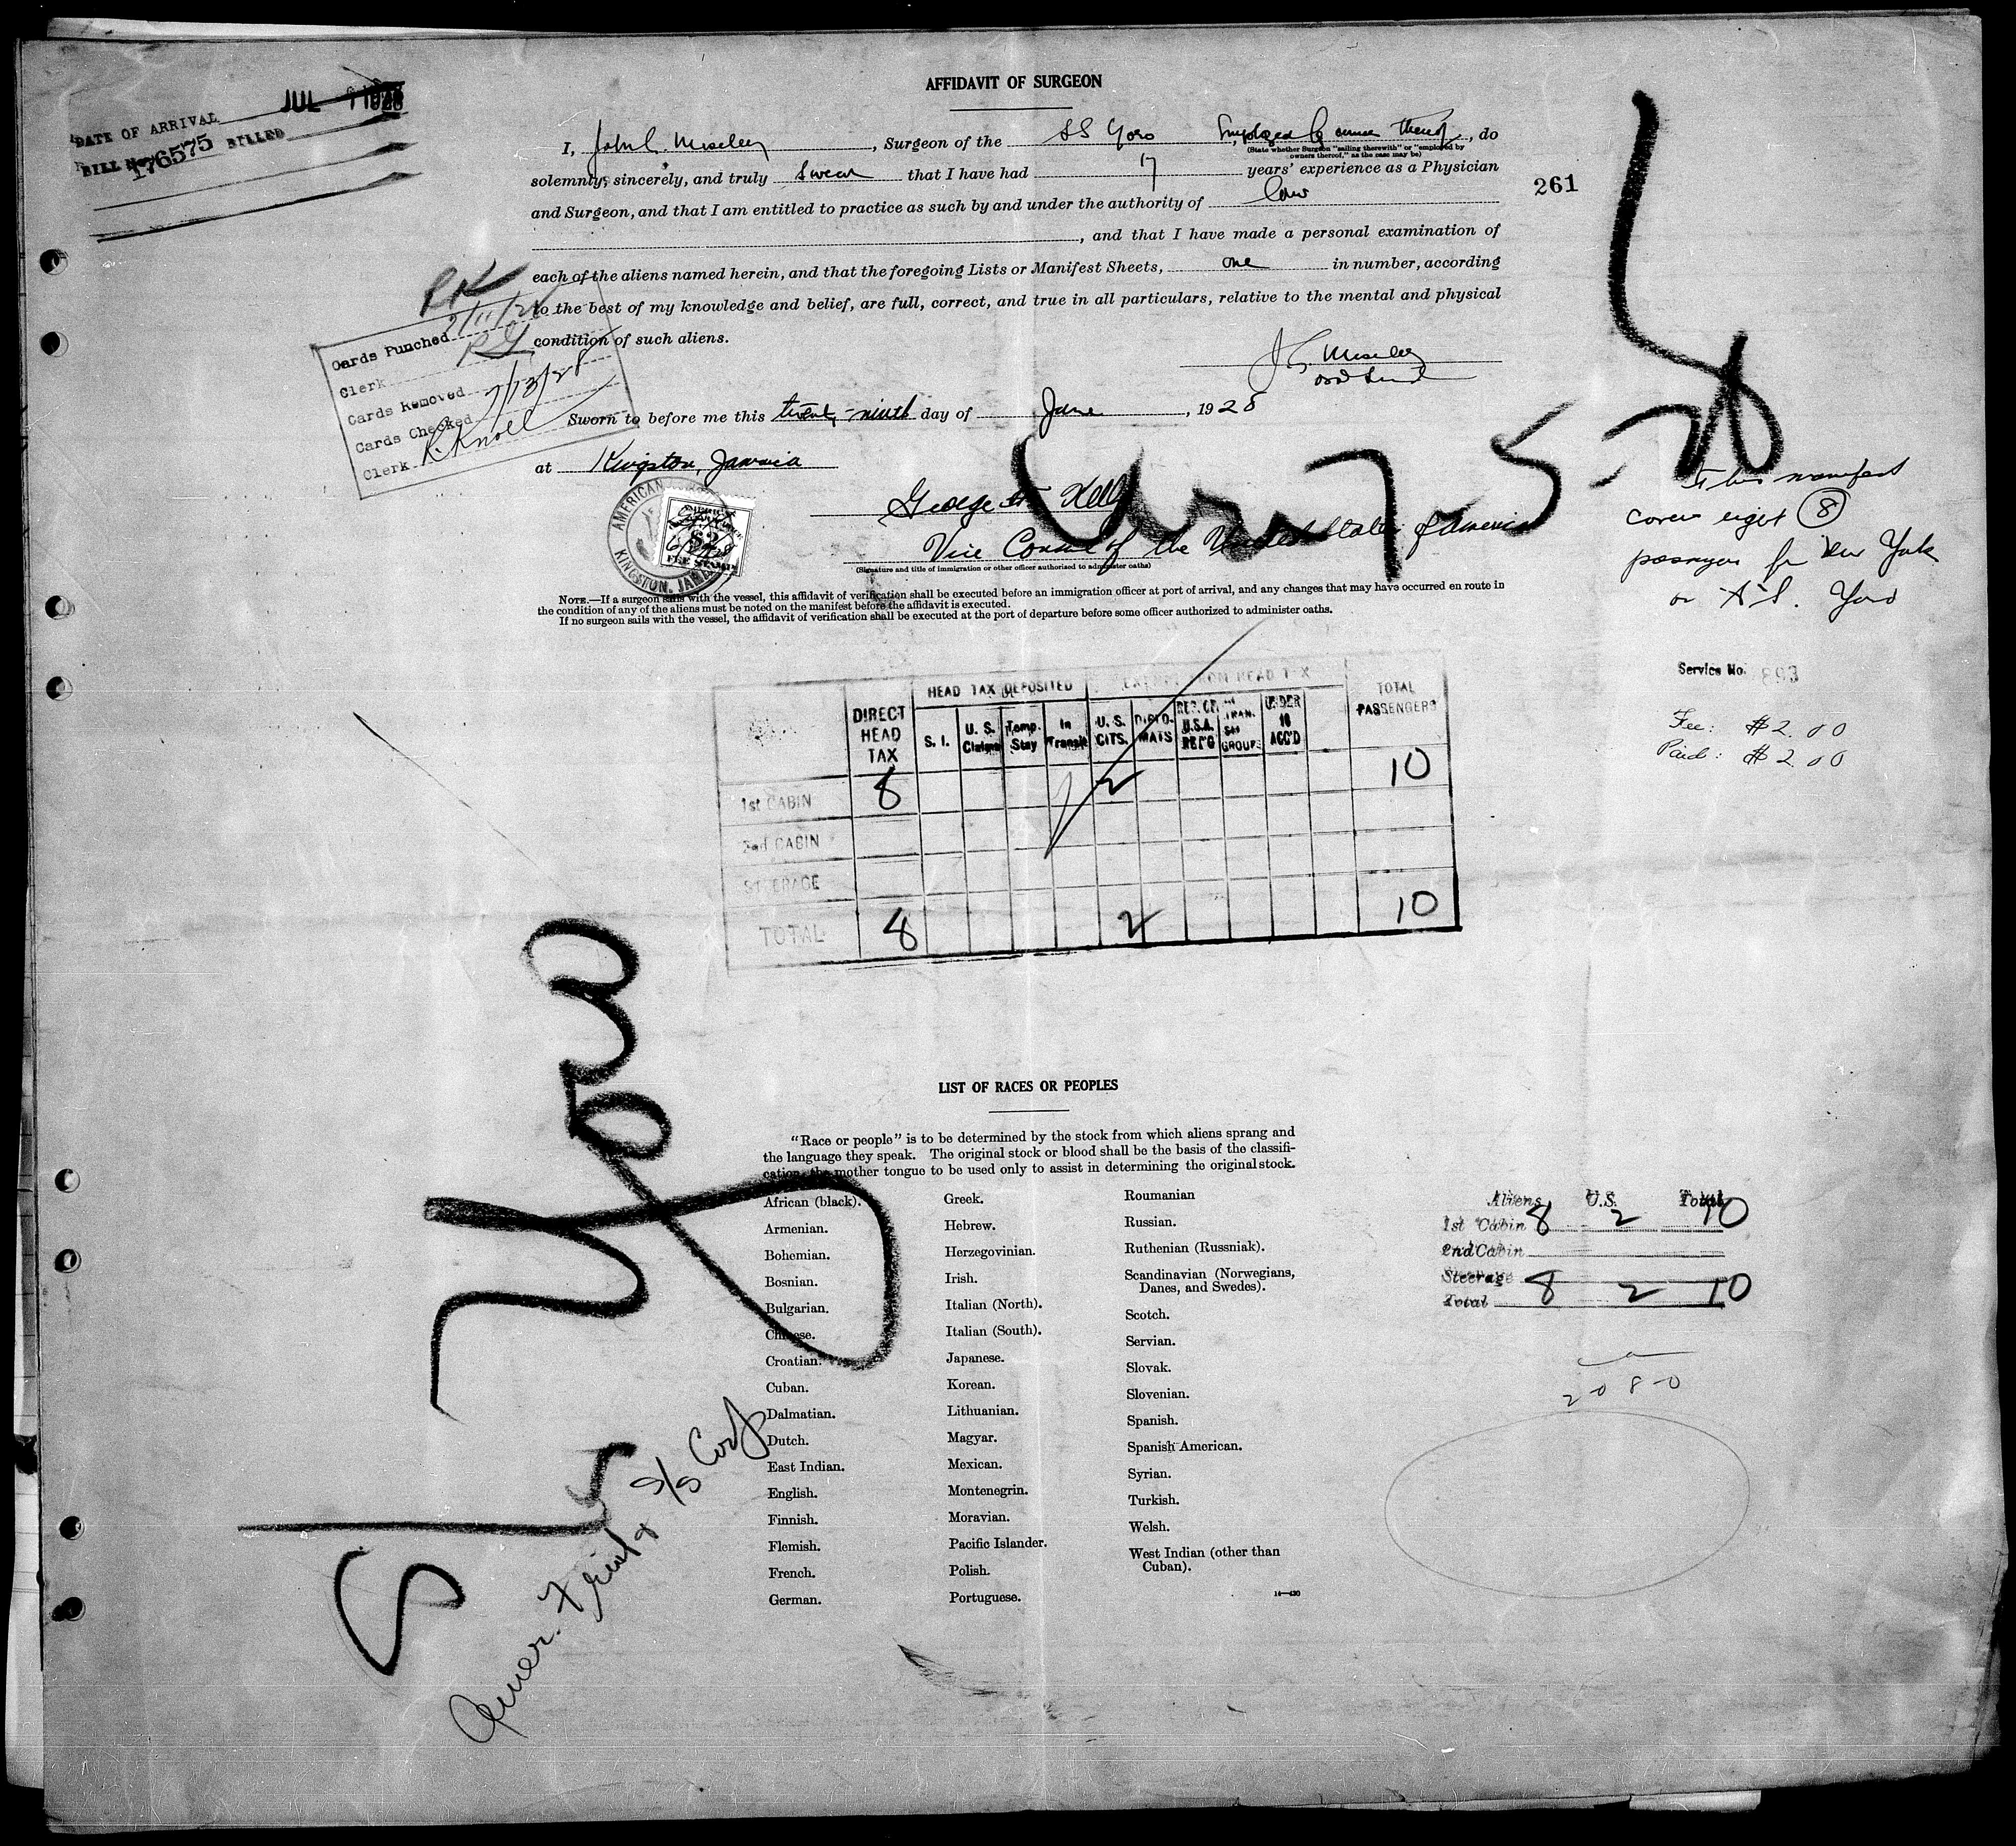 AFFIDAVIT OF SURGEON
DATE OF ARRIVAL JUL 1928
BILL No. 176575 BILLED
I, John C. Moseley, Surgeon of the SS Yoro Employed by owners thereof, do
(State whether Surgeon "sailing therewith" or "employed by
owners thereof," as the case may be)
solemnly, sincerely, and truly swear that I have had 17 years' experience as a Physician
261
and Surgeon, and that I am entitled to practice as such by and under the authority of law
, and that I have made a personal examination of
each of the aliens named herein, and that the foregoing Lists or Manifest Sheets, one in number, according
to the best of my knowledge and belief, are full, correct, and true in all particulars, relative to the mental and physical
condition of such aliens.
Cards Punched
Clerk
Cards Removed
Cards Checked 7/13/28
Clerk R. Knoll
Moseley
Sworn to before me this twenty-ninth day of June, 1928
at Kingston, Jamaica
AMERICAN
KINGSTON, JAMAICA
$2
FEE STAMP
George Kelly
Vice Consul of the United States of America
(Signature and title of immigration or other officer authorized to administer oaths)
Arr 7-5-28
This manifest
covers eight (8)
passengers for New York
on S.S. Yoro
NOTE.—If a surgeon sails with the vessel, this affidavit of verification shall be executed before an immigration officer at port of arrival, and any changes that may have occurred en route in
the condition of any of the aliens must be noted on the manifest before the affidavit is executed.
If no surgeon sails with the vessel, the affidavit of verification shall be executed at the port of departure before some officer authorized to administer oaths.
Service No. 893
Fee: $2.00
Paid: $2.00
HEAD TAX DEPOSITED EXEMPT FROM HEAD TAX
DIRECT HEAD TAX S. I. U. S. Claims Temp. Stay In Transit U. S. CITS. DIPLO-MATS REP. CF. U.S.A. RET'G IN TRAN. S&F GROUPS UNDER 16 ACC'D TOTAL PASSENGERS
1st CABIN 8 2 10
2nd CABIN
STEERAGE
TOTAL 8 2 10
S/S Yoro
Amer. Fruit & S/S Corp
LIST OF RACES OR PEOPLES
"Race or people" is to be determined by the stock from which aliens sprang and
the language they speak. The original stock or blood shall be the basis of the classifi-
cation, the mother tongue to be used only to assist in determining the original stock.
African (black).
Armenian.
Bohemian.
Bosnian.
Bulgarian.
Chinese.
Croatian.
Cuban.
Dalmatian.
Dutch.
East Indian.
English.
Finnish.
Flemish.
French.
German.
Greek.
Hebrew.
Herzegovinian.
Irish.
Italian (North).
Italian (South).
Japanese.
Korean.
Lithuanian.
Magyar.
Mexican.
Montenegrin.
Moravian.
Pacific Islander.
Polish.
Portuguese.
Roumanian
Russian.
Ruthenian (Russniak).
Scandinavian (Norwegians,
Danes, and Swedes).
Scotch.
Servian.
Slovak.
Slovenian.
Spanish.
Spanish American.
Syrian.
Turkish.
Welsh.
West Indian (other than
Cuban).
14—430
Aliens U.S. Total
1st Cabin 8 2 10
2nd Cabin
Steerage
Total 8 2 10
2080